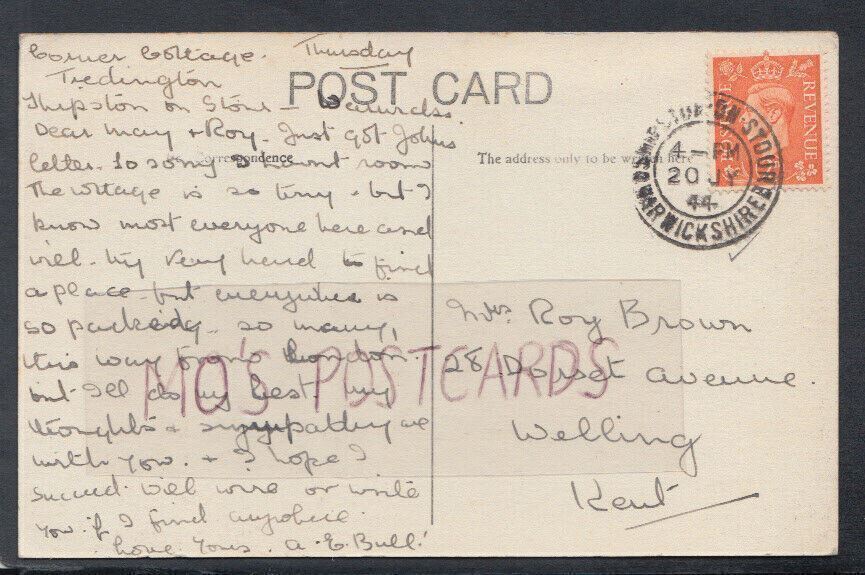 Corner Cottage. Thursday
Tredington
Shipston on Stour - Warwicks.
POST CARD
Dear Mary & Roy. Just got Johns
letter. So sorry I havnt room
Correspondence
The cottage is so tiny - but I
know most everyone here and
will try very hard to find
a place - but everywhere is
so packed, so many,
this way from London.
but I'll do my best. my
thoughts & sympathy are
with you. & I hope I
succeed. will wire or write
you if I find anywhere.
Love yours. A. E. Bull.
The address only to be written here
REVENUE
SHIPSTON-ON-STOUR
4 - PM
20 JY
44
WARWICKSHIRE
Mrs Roy Brown
28 Dorset Avenue.
Welling
Kent
MO'S POSTCARDS